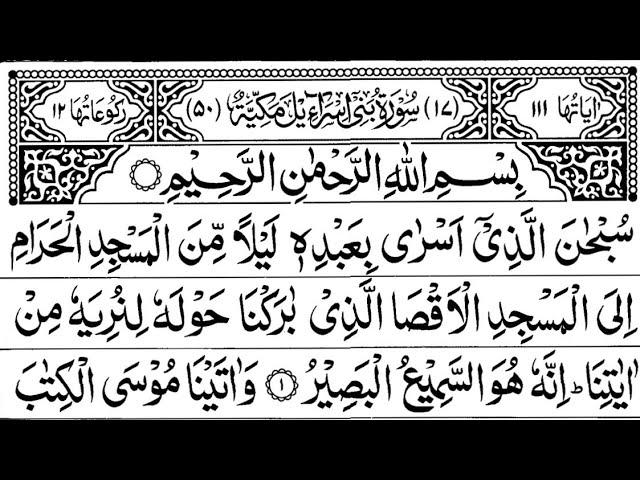 اٰيَاتُهَا ١١١ (١٧) سُوْرَةُ بَنِیْۤ اِسْرَآءِيْلَ مَكِّيَّةٌ (٥٠) رُكُوْعَاتُهَا ١٢
بِسْمِ اللّٰهِ الرَّحْمٰنِ الرَّحِيْمِ
سُبْحٰنَ الَّذِیْۤ اَسْرٰی بِعَبْدِهٖ لَيْلًا مِّنَ الْمَسْجِدِ الْحَرَامِ
اِلَی الْمَسْجِدِ الْاَقْصَا الَّذِیْ بٰرَكْنَا حَوْلَهٗ لِنُرِيَهٗ مِنْ
اٰيٰتِنَا ؕ اِنَّهٗ هُوَ السَّمِيْعُ الْبَصِيْرُ ١ وَاٰتَيْنَا مُوْسَی الْكِتٰبَ